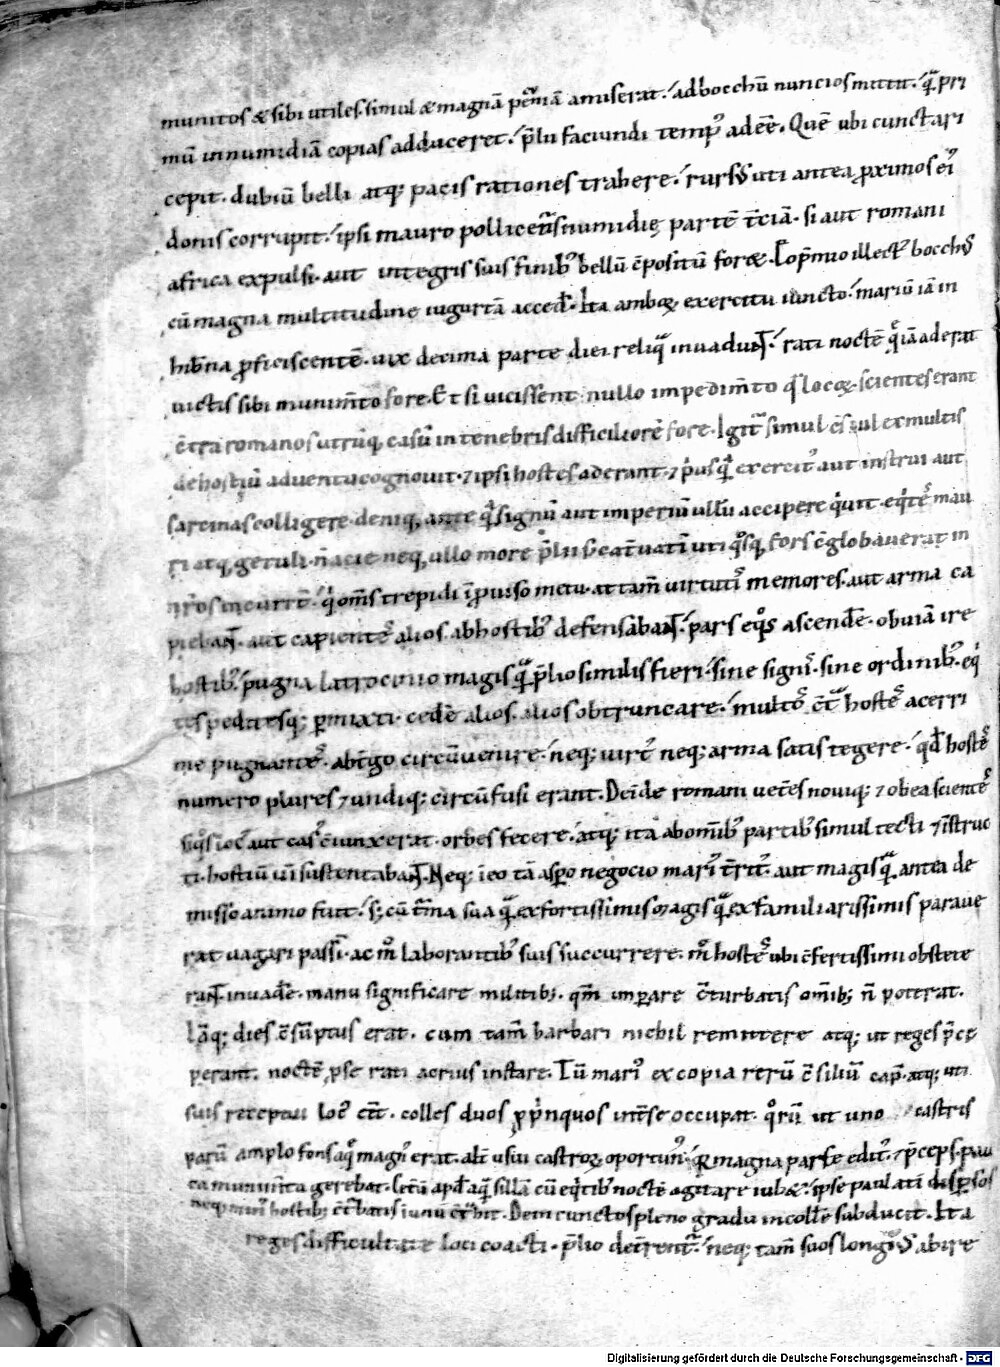 munitos & sibi utiles. simul & magnā pecūiā amiserat. ad bocchū nuncios mittit. quā pri
mū in numidiā copias adduceret. p̄lii faciundi temp' adeē. Quē ubi cunctari
cepit. dubiū belli atq; pacis rationes trahere. rursū uti antea proximos ei'
donis corrupit. ipsi mauro pollicens numidię partē t̄ciā. si aut romani
africa expulsi. aut integris suis finib' bellū cōpositū for&. Eo p̄mio illect' bocch'
cū magna multitudine iugurtā acced̄. Ita amboꝝ exercitu iuncto. mariū iā in
hibna proficiscentē. uix decima parte diei reliqua inuadunt. rati noctē que iā aderat
uictis sibi munim̄to fore. Et si uicissent nullo impedim̄to quia locoꝝ scientes erant
c̄tra romanos utrūq; casū in tenebris difficiliorē fore. Igit' simul c̄sul ex multis
de hostiū aduentu cognouit. ⁊ ipsi hostes aderant. ⁊ p'usquā exercit' aut instrui aut
sarcinas colligere. deniq; ante quā signū aut imperiū ullū accipere quiuit. eq'tes mau
ri atq; getuli. n̄ acie neq; ullo more p̄lii s; cat̄uatī uti quosq; fors c̄globauerat in
nros incurrt̄. qui om̄s trepidi īprouiso metu. at tam̄ uirtutis memores. aut arma ca
piebant. aut capientes alios ab hostib' defensabant. pars eq'os ascende. obuiā ire
hostib'. pugna latrocinio magis quā p̄lio similis fieri. sine signis. sine ordinib'. eq'
tes peditesq; p̄mixti. cedē alios. alios obtruncare. multos c̄tra hostes acerri
me pugnantes. abt̄go circūuenire. neq; uirt' neq; arma satis tegere. quod hostes
numero plures ⁊ undiq; circūfusi erant. Deīde romani uet̄es nouiq; ⁊ ob ea scientes
siquos loc' aut cas' c̄iunxerat. orbes fecere. atq; ita ab omīb' partib' simul tecti ⁊ īstruc
ti. hostiū uī sustentabant. Neq; ī eo tā aspero negocio mari' t̄rit'. aut magis quā antea de
misso animo fuit. s; cū t̄ma sua quā ex fortissimis magis quā ex familiarissimis paraue
rat uagari passim. ac mō laborantib' suis succurrere. mō hostes ubi c̄fertissimi obstite
rant. inuade. manu significare militib;. qm̄ imp̄are c̄turbatis omīb; n̄ poterat.
Iāq; dies c̄sūptus erat. cum tam̄ barbari nichil remittere atq; ut reges p̄ce
perant. noctē p̄ se rati acrius instare. Tū mari' ex copia rerū c̄siliū cap̄. atq; uti
suis receptui loc' e͞et. colles duos propinquos int̄ se occupat. quorū ut uno castris
parū amplo fons aq magn' erat. alt̄ usui castroꝝ oportun'. quia magna parte edit'. ⁊ p̄ceps. pau
ca munim̄ta gerebat. Cet̄ū apd̄ aquā sillā cū eq'tib' noctē agitare iub&. ipse paulatī dispersos
neq; min' hostib; c̄t'batis in unū c̄t'hit. Dein cunctos pleno gradu in collē subducit. Ita
reges difficultate loci coacti. p̄lio det̄rent'. neq; tam̄ suos longius abire
Digitalisierung gefördert durch die Deutsche Forschungsgemeinschaft - DFG